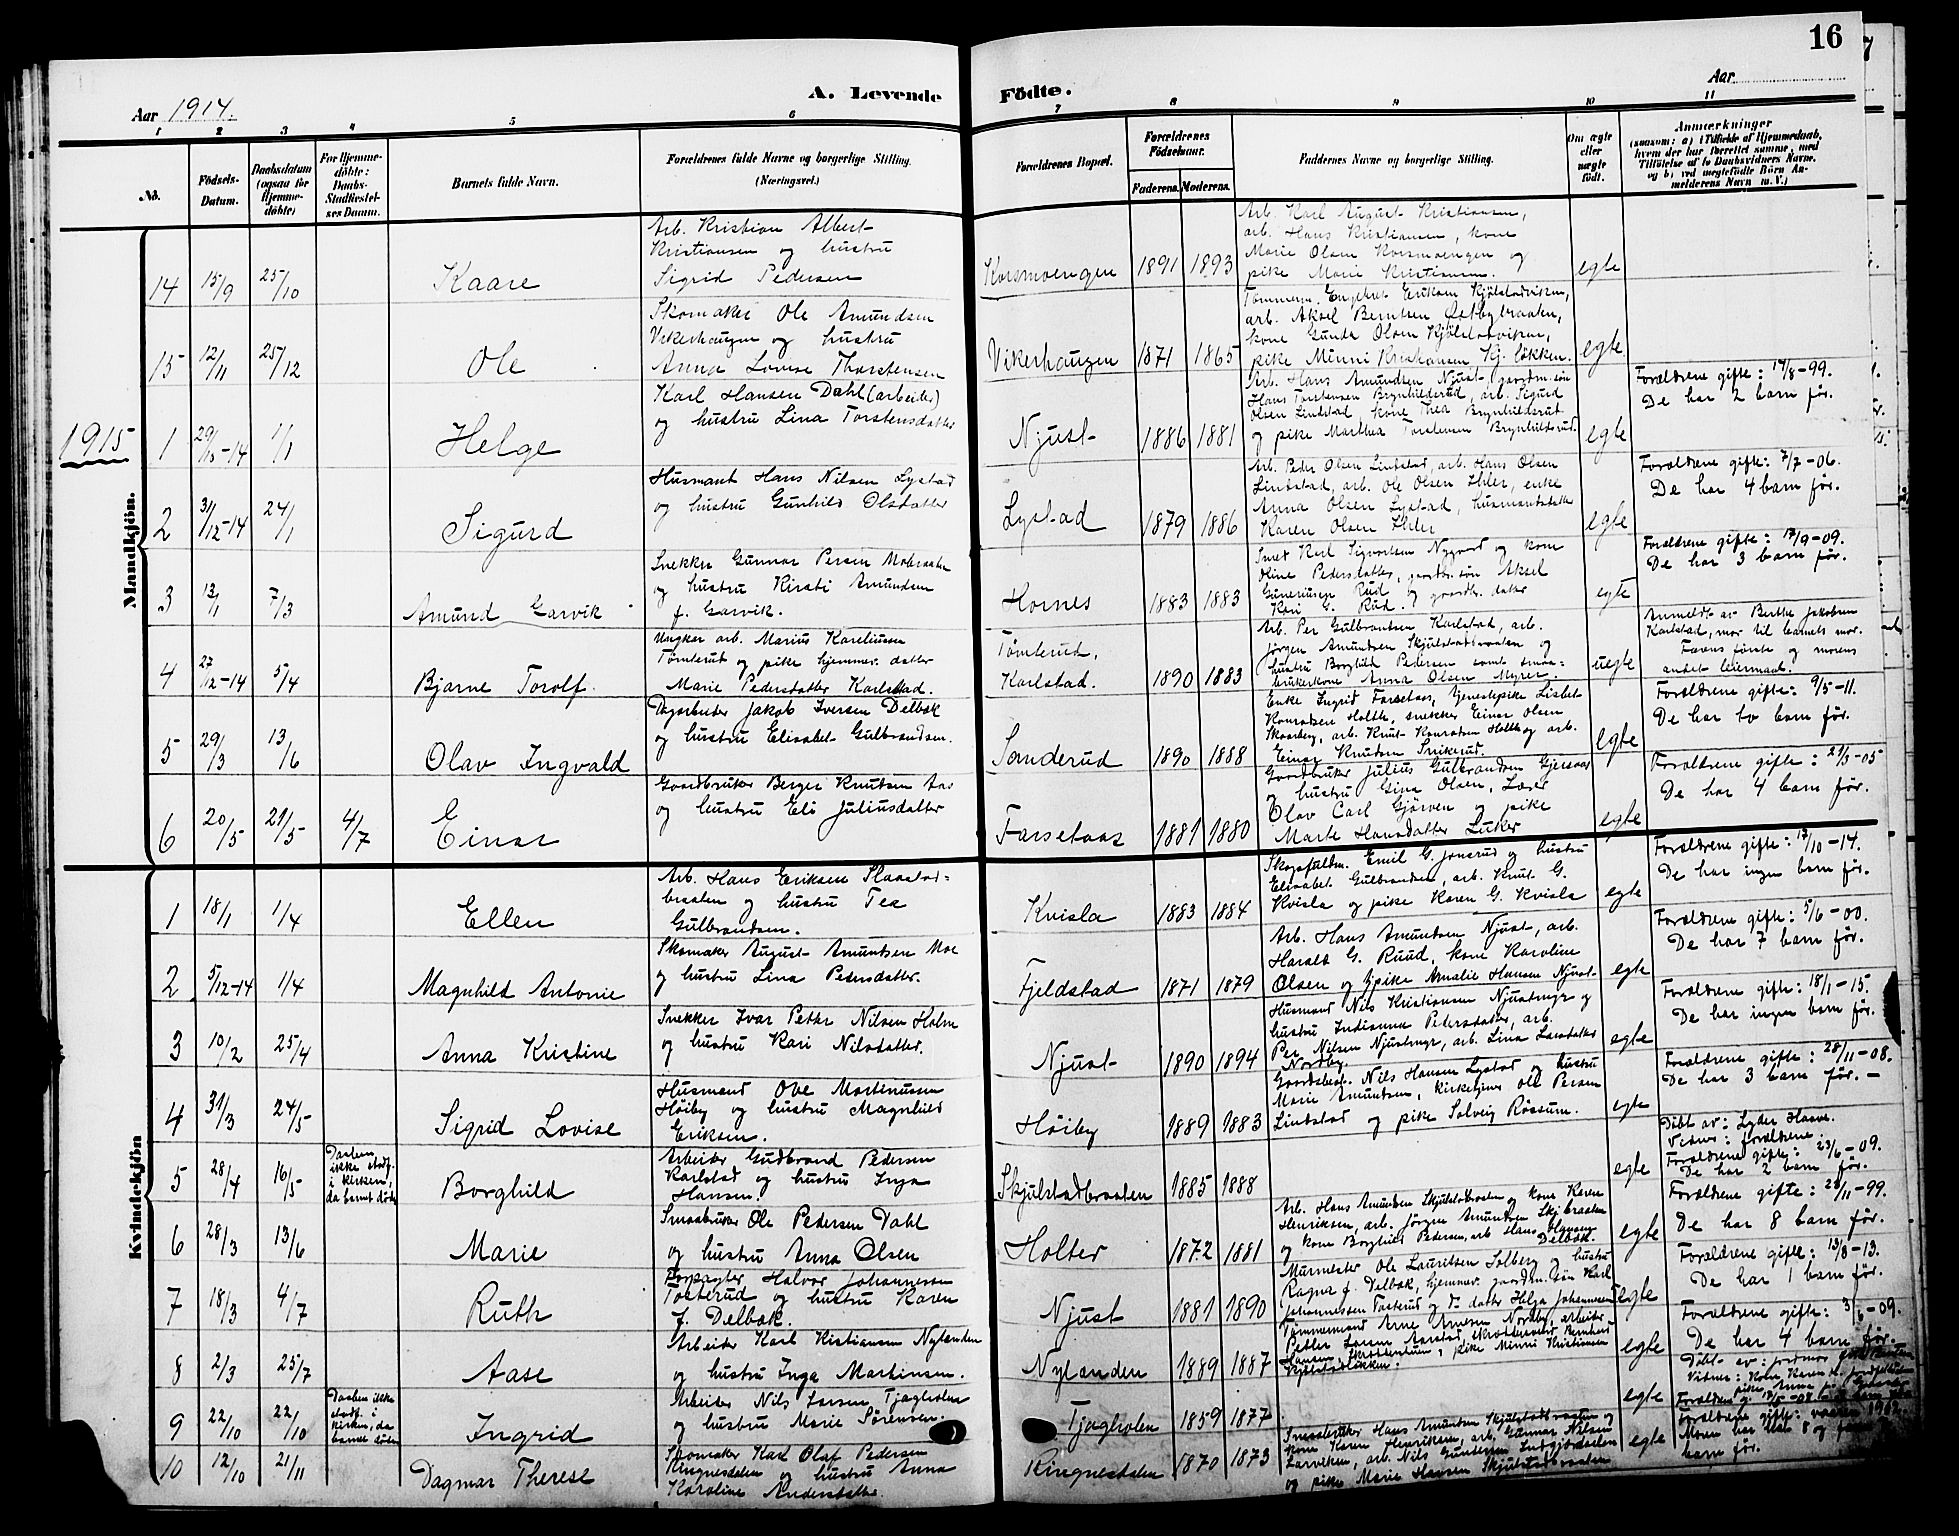 16
Aar 1914.
A. Levende Födte.
Aar
1 2 3 4 5 6 7 8 9 10 11
No.
Födsels-Datum.
Daabsdatum (ogsaa for Hjemme-döbte)
For Hjemme-döbte: Daabs-Stadfæstel-ses Datum.
Barnets fulde Navn.
Forældrenes fulde Navne og borgerlige Stilling. (Næringsvei.)
Forældrenes Bopæl.
Forældrenes Födselsaar.
Faderens. Moderens.
Faddernes Navne og borgerlige Stilling.
Om ægte eller uægte födt.
Anmærkninger
(saasom: a) i Tilfælde af Hjemmedaab, hvem der har forrettet samme, med Tilföielse af to Daabsvidners Navne. og b) ved uægtefödte Börn An-melderens Navn m. V.)
Mandkjön.
14 15/9 25/10 Kaare
Arb. Kristian Albert
Kristiansen og hustru
Sigrid Pedersen
Korsmoengen 1891 1893
Arb. Karl August Kristiansen,
arb. Hans Kristiansen, kone
Marie Olsen Korsmoengen og
pike Marie Kristiansen.
egte
15 12/11 25/12 Ole
Skomaker Ole Amundsen
Vikerhaugen og hustru
Anna Lovise Thorstensen
Vikerhaugen 1871 1865
Tømmerm. Engebret Eriksen Kjølstadviken,
arb. Aksel Berntsen Østbybraaten,
kone Gunda Olsen Kjølstadviken,
pike Minni Kristiansen Kj. løkken.
egte
1915
1 29/ -14 1/1 Helge
Karl Hansen Dahl (arbeider)
og hustru Lina Torstensdatter
Njust 1886 1881
Arb. Hans Amundsen Njust, gaardm. søn
Hans Torstensen Brynhildsrud, arb. Sigurd
Olsen Lindstad, kone Thea Brynhildsrud
og pike Marthea Torstensen Brynhildsrud
egte
Forældrene gifte: 14/8-99.
De har 2 barn før.
2 31/12-14 24/1 Sigurd
Husmand Hans Nilsen Lystad
og hustru Gunhild Olsdatter
Lystad 1879 1886
Arb. Peder Olsen Lindstad, arb. Hans Olsen
Lindstad, arb. Ole Olsen Ihler, enke
Anna Olsen Lystad, husmandsdatter
Karen Olsen Ihler
egte
Forældrene gifte: 7/7-06.
De har 4 barn før.
3 13/1 7/3 Amund Garvik
Snekker Gunnar Persen Mobraaten
og hustru Kirsti Amundsen
f. Garvik.
Hornes 1883 1883
Smed Karl Sigvartsen Nygaard og kone
Oline Pedersdatter, gaardbr. søn Aksel
Guneriusen Rud og gaardb. datter
Kari G. Rud.
egte
Forældrene gifte: 17/9-09.
De har 3 barn før.
4 27/12-14 5/4 Bjarne Torolf
Ungkar arb. Marius Kareliusen
Tømterud og pike hjemmev. datter
Marie Pedersdatter Karlstad.
Tømterud,
Karlstad. 1890 1883
Arb. Per Gulbrandsen Karlstad, arb.
Jørgen Amundsen Skjulstadbraaten og
hustru Borghild Pedersen samt smaa-
brukerkone Anna Olsen Myrer.
uegte
Anmeldt av Berthe Jakobsen
Karlstad, mor til barnets mor.
Farens første og morens
andet leiermaal.
5 29/3 13/6 Olav Ingvald
Dagarbeider Jakob Iversen Delbæk
og hustru Elisabet Gulbrandsen.
Sanderud 1890 1888
Enke Ingrid Farsetaas, tjenestepike Lisbet
Konradsen Holth, snekker Einar Olsen
Skaarberg, arb. Knut Konradsen Holth og arb.
Einar Knudsen Snikerud.
egte
Forældrene gifte: 9/5-11.
De har to barn før.
6 20/5 21/5 4/7 Einar
Gaardbruker Berger Knutsen Aas
og hustru Eli Juliusdatter
Farsetaas 1881 1880
Gaardbruker Julius Gulbrandsen Gjersøe
og hustru Gina Olsen, Lærer
Olav Carl Gjørven og pike
Marte Hansdatter Luker
egte
Forældrene gifte: 21/3-05
De har 4 barn før.
Kvindekjön
1 18/1 1/4 Ellen
Arb. Hans Eriksen Slaastad-
braaten og hustru Tea
Gulbrandsen.
Kvisla 1883 1884
Skogsfuldm. Emil G. Jonsrud og hustru
Elisabet Gulbrandsen, arb. Knut G.
Kvisla og pike Karen G. Kvisla
egte
Forældrene gifte: 17/10-14.
De har ingen barn før.
2 5/12-14 1/4 Magnhild Antonie
Skomaker August Amundsen Moe
og hustru Lina Pedersdatter.
Fjeldstad 1871 1879
Arb. Hans Amundsen Njust, arb.
Harald G. Ruud, kone Karoline
Olsen og pike Amalie Hansen Njust
egte
Forældrene gifte: 5/6-00.
De har 7 barn før.
3 10/2 25/4 Anna Kristine
Snekker Ivar Petter Nilsen Holm
og hustru Kari Nilsdatter.
Njust 1890 1894
Husmand Nils Kristiansen Njustmyr og
hustru Indianna Pedersdatter, arb.
Per Nilsen Njustmyr, arb. Lina Larsdatter
Nordby.
egte
Forældrene gifte: 18/1-15.
De har ingen barn før.
4 31/3 24/5 Sigrid Lovise
Husmand Ove Martinusen
Høiby og hustru Magnhild
Eriksen.
Høiby 1889 1883
Gaardsbest. Nils Hansen Lystad og hustru
Marie Amundsen, kirketjener Ole Persen
Lindstad og pike Solveig Røssum.
egte
Forældrene gifte: 28/11-08.
De har 3 barn før. -
5 28/4 16/5
Daaben
ikke stadf.
i kirken,
da barnet døde
Borghild
Arbeider Gudbrand Pedersen
Karlstad og hustru Inga
Hansen.
Skjulstadbraaten 1885 1888
egte
Døbt av: Lyder Haave.
Vidner: forældrene.
Forældrene gifte: 23/6-09.
De har 2 barn før.
6 28/3 13/6 Marie
Smaabruker Ole Pedersen Dahl
og hustru Anna Olsen
Holter 1872 1881
Arb. Hans Amundsen Skjulstadbraaten og kone Karen
Henriksen, arb. Jørgen Amundsen Skj.braaten
og kone Borghild Pedersen, arb. Hans Hansen
Delbæk.
egte
Forældrene gifte: 28/11-99.
De har 8 barn før.
7 18/3 4/7 Ruth
Forpagter Halvor Johannesen
Tosterud og hustru Karen
f. Delbæk.
Njust 1881 1890
Murmester Ole Lauritsen Solberg og hustru
Ragna f. Delbæk, hjemmev. gaardm. søn Karl
Johannessen Tosterud og do datter Helga Johannessen
egte
Forældrene gifte: 13/8-13.
De har 1 barn før.
8 2/3 25/7 Aase
Arbeider Karl Kristiansen Nylænden
og hustru Inga Martinsen.
Nylænden 1889 1887
Tømmermand Arne Arnesen Nordby, arbeider
Petter Larsen Aarstad, skrædersvend Bernhard
Hansen, pike Minni Kristiansen
Kjølstadløkken.
egte
Forældrene gifte: 3/6-09.
De har 4 barn før.
9 22/10 22/10
Daaben ikke
stadf. i
kirken, da
barnet døde
Ingrid
Arbeider Nils Larsen Tjagholen
og hustru Marie Sørensen.
Tjagholen 1859 1877
egte
Døbt av: jordmor
Vidner: Kone Karen
pike Anna
10 12/10 21/11 Dagmar Therese
Skomaker Karl Olaf Pedersen
Ringnesdalen og hustru Anna
Karoline Andersdatter.
Ringnesdalen 1870 1873
Smaabruker Hans Amundsen Skjulstadbraaten og
kone Karen Henriksen, arb. Gunnar Nilsen
Larviken, arb. Nils Gundersen
og pike Marie Hansen Skjulstadbraaten
egte
Forældrene gifte: vaaren 1912.
Moren har 8 og faren
barn før.